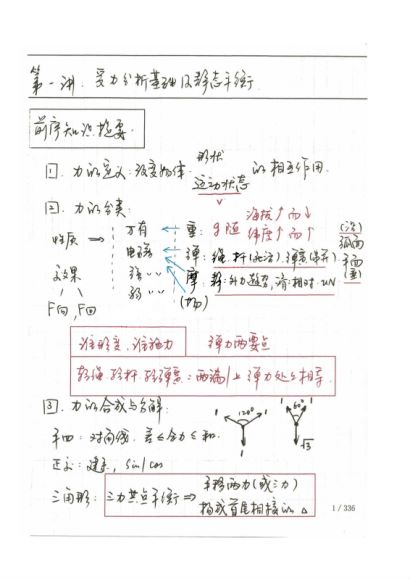 第一讲. 受力分析基础及静态平衡
前序知识提要.
1. 力的定义: 改变物体 形状 运动状态 的相互作用.
2. 力的分类:
性质 → 万有 ← 重: g随 海拔↑而↓ 纬度↑而↑
电磁 ← 弹: 绳, 杆, 弹簧
强
弱
摩
效果
F向, F回
弹力两要点
轻绳 轻杆 轻弹簧: 两端/上 弹力处处相等.
3. 力的合成与分解:
平四: 对角线. 差≤合力≤和.
正交: 建系, sin/cos
1 1 120° 1
1 60° 1 √3
三角形: 三力共点平衡 ⇒ 平移两力(或三力)
构成首尾相接的 △
1 / 336